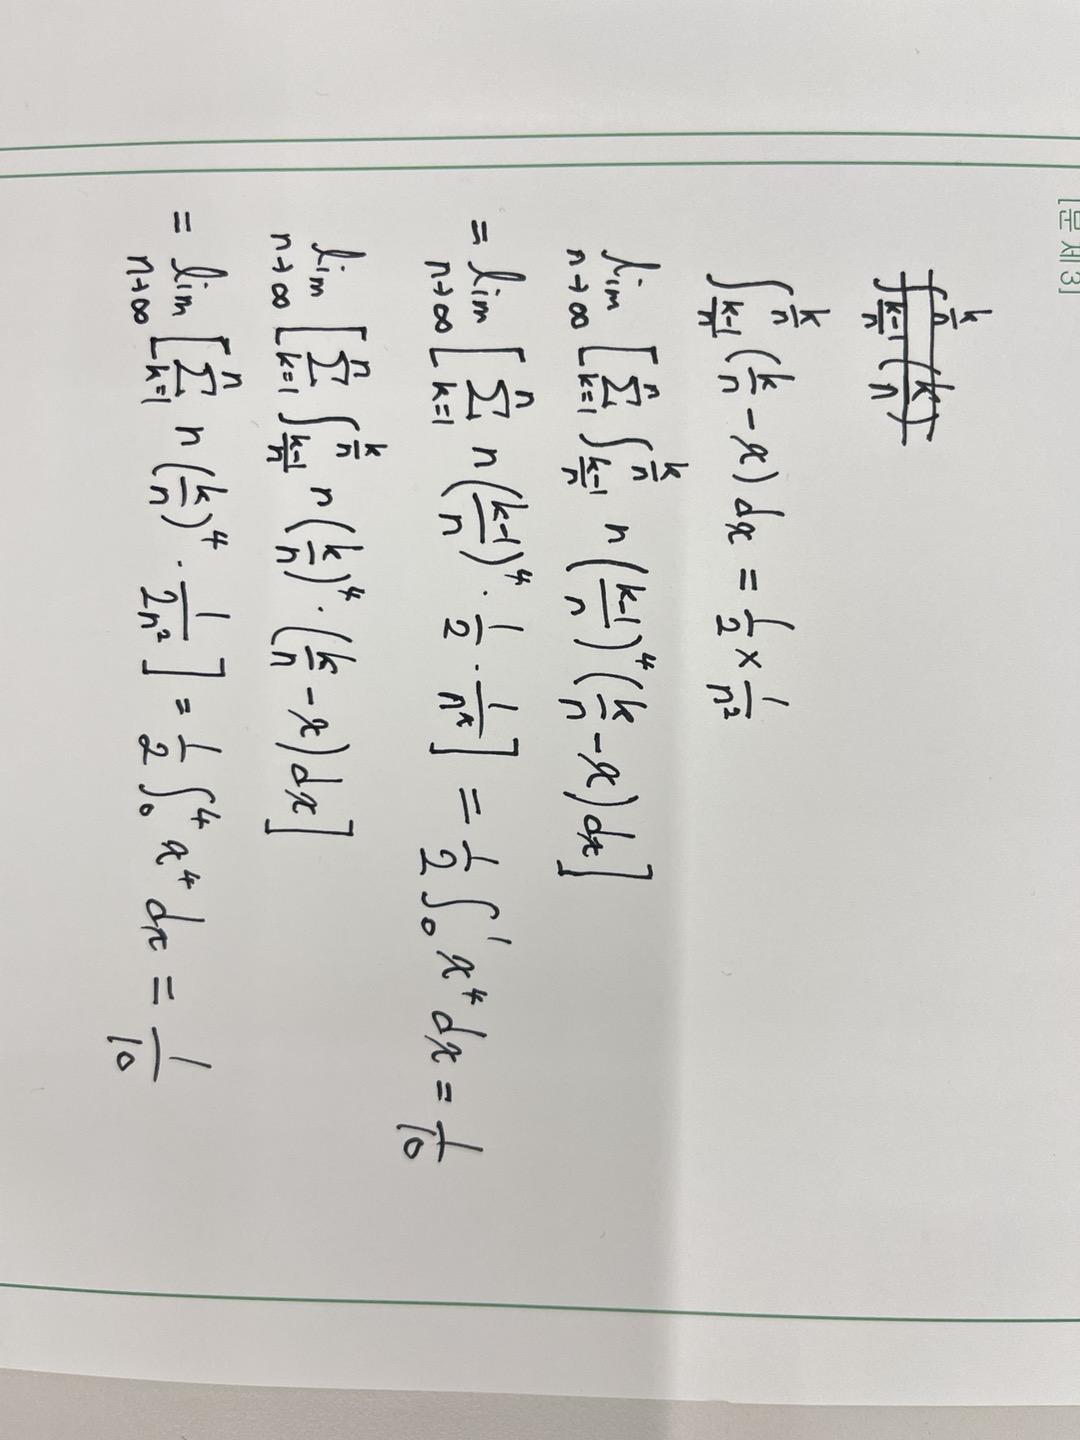 [문제3]
∫_{\frac{k-1}{n}}^{\frac{k}{n}} (\frac{k}{n})
∫_{\frac{k-1}{n}}^{\frac{k}{n}} (\frac{k}{n} - x) dx = \frac{1}{2} × \frac{1}{n^2}
lim_{n→∞} [∑_{k=1}^{n} ∫_{\frac{k-1}{n}}^{\frac{k}{n}} n (\frac{k-1}{n})^4 (\frac{k}{n} - x) dx]
= lim_{n→∞} [∑_{k=1}^{n} n (\frac{k-1}{n})^4 · \frac{1}{2} · \frac{1}{n^2}] = \frac{1}{2} ∫_0^1 x^4 dx = \frac{1}{10}
lim_{n→∞} [∑_{k=1}^{n} ∫_{\frac{k-1}{n}}^{\frac{k}{n}} n (\frac{k}{n})^4 · (\frac{k}{n} - x) dx]
= lim_{n→∞} [∑_{k=1}^{n} n (\frac{k}{n})^4 · \frac{1}{2n^2}] = \frac{1}{2} ∫_0^4 x^4 dx = \frac{1}{10}